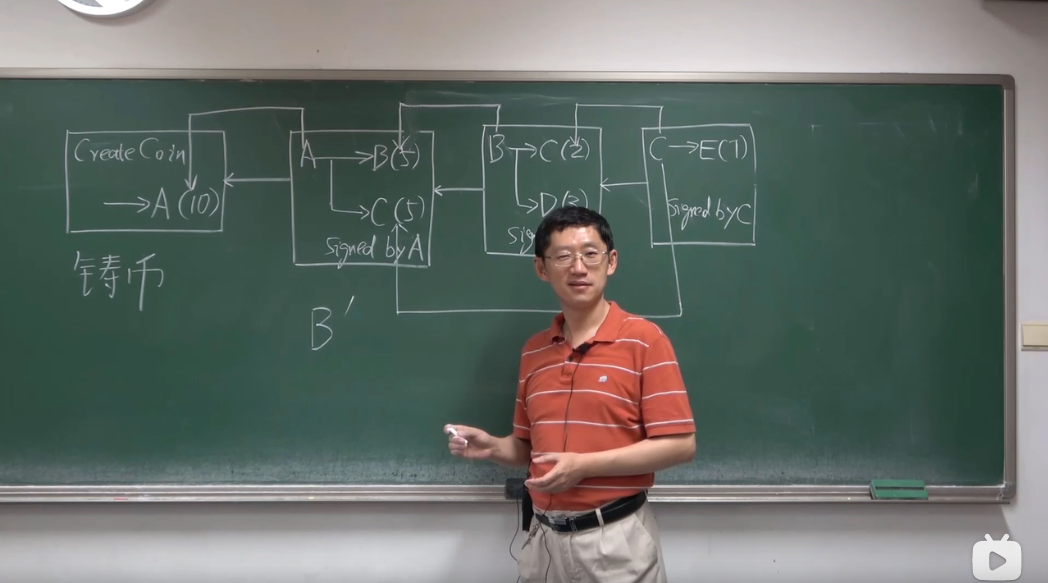 CreateCoin
→A(10)
铸币
A→B(5)
→C(5)
signed by A
B→C(2)
→D(3)
C→E(7)
signed by C
B′